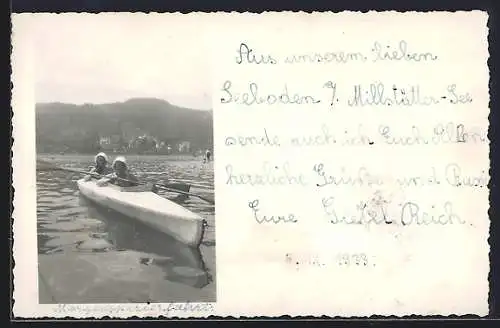 Aus unserem lieben
Seeboden a/ Millstätter-See
sende auch ich Euch Allen
herzliche Grüße und Bussi
Eure Gretel Reich.
1933.